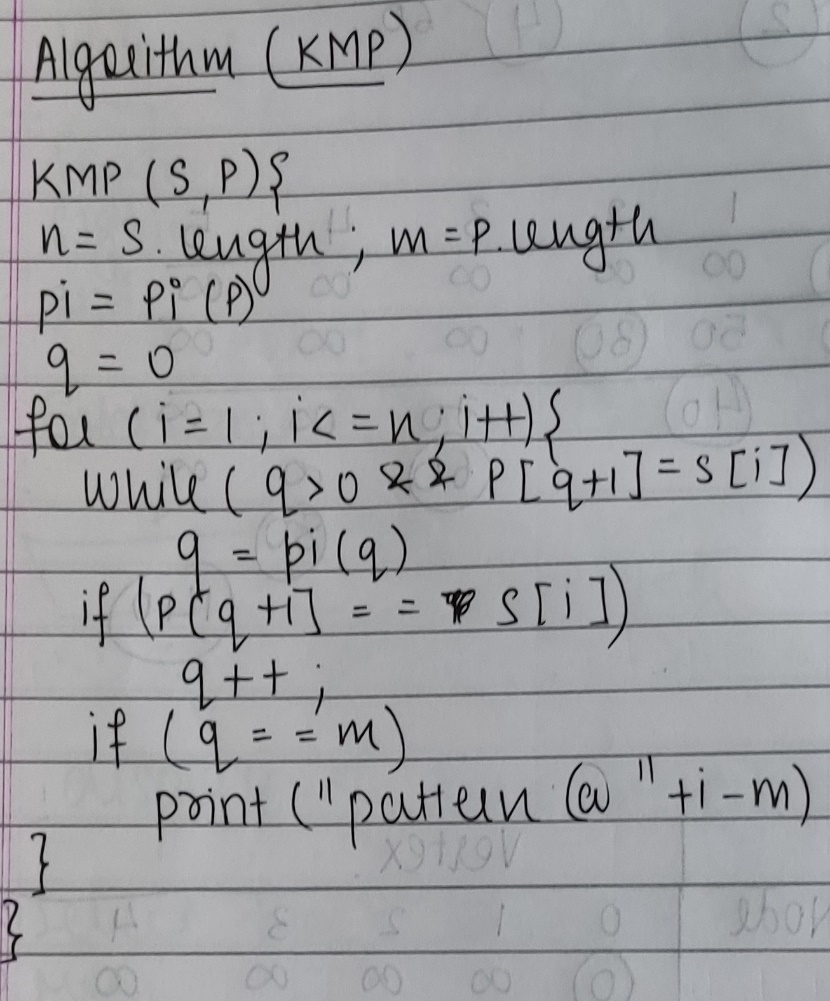 Algorithm (KMP)
KMP (S,P){
n= S.length; m=P.length
pi = Pi(P)
q = 0
for (i=1; i<=n; i++){
while( q>0 && P[q+1]=S[i])
q = pi(q)
if (P[q+1] == S[i])
q++;
if (q==m)
print ("pattern @"+i-m)
}
}